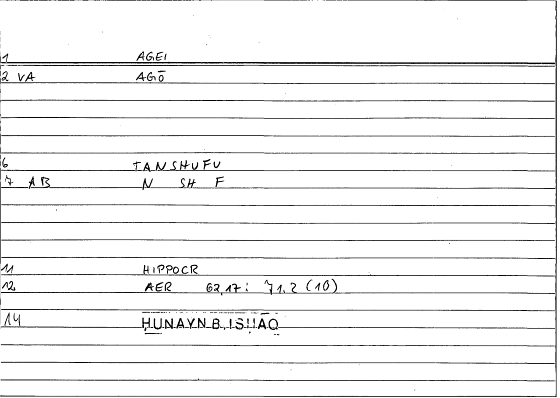 1 AGEI
2 VA AGŌ
6 TANSHUFU
7 AB N SH F
11 HIPPOCR
12 AER 62,17: 71.2 (10)
14 ḤUNAYN B. ISḤĀQ